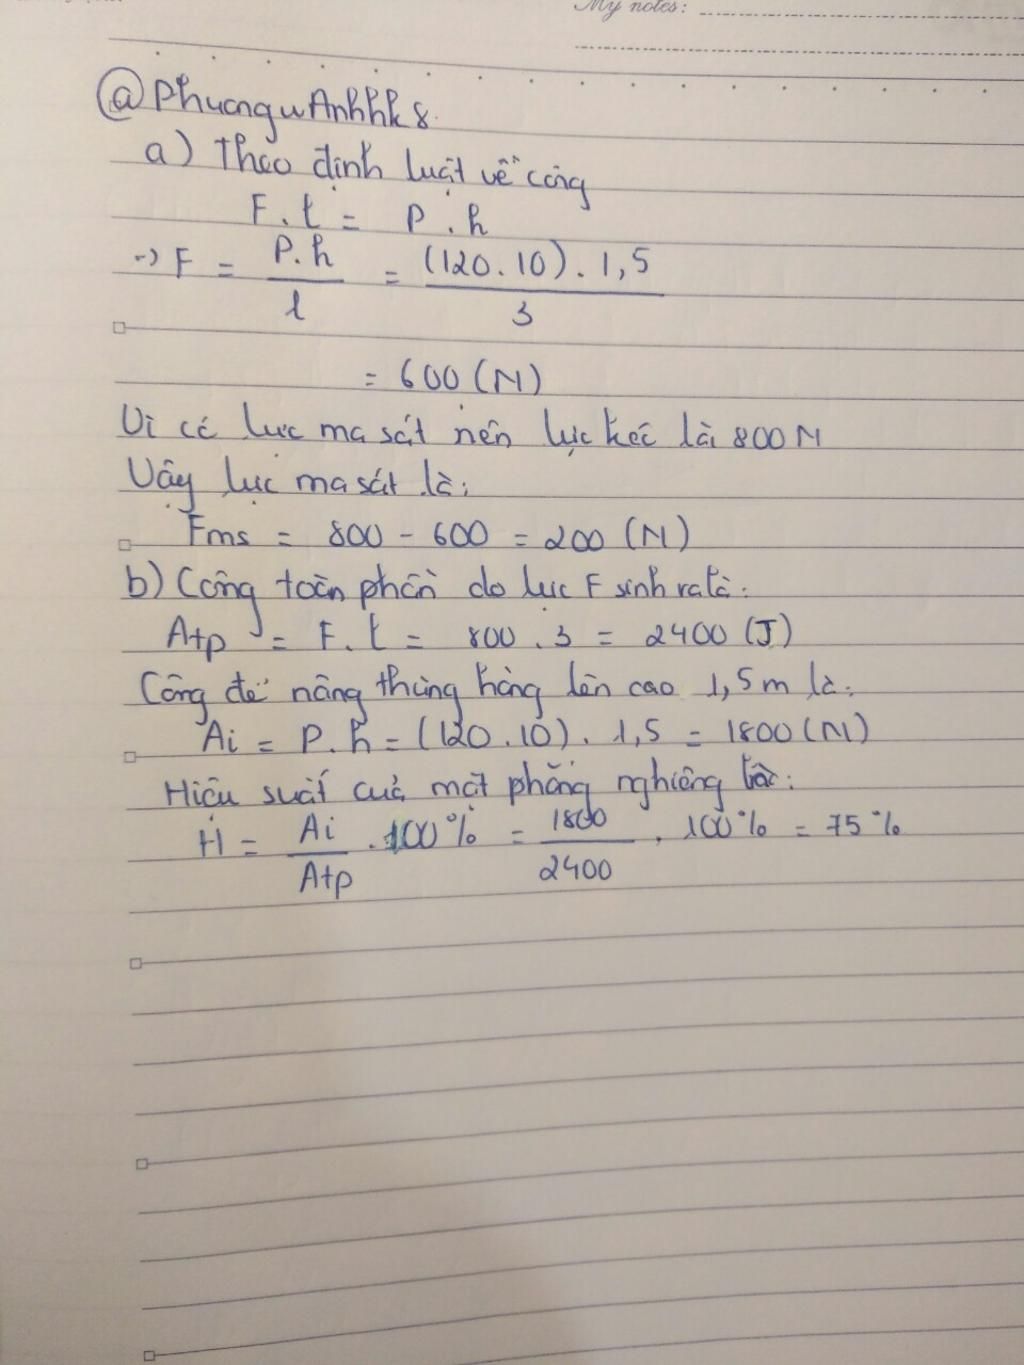 My notes:
@PhuongwAnhhk8.
a) Theo định luật về công
F.l = P.h
-> F = P.h / l = (120.10).1,5 / 3
= 600 (N)
Vì có lực ma sát nên lực kéo là 800N
Vậy lực ma sát là:
Fms = 800 - 600 = 200 (N)
b) Công toàn phần do lực F sinh ra là:
Atp = F.l = 800.3 = 2400 (J)
Công để nâng thùng hàng lên cao 1,5m là:
Ai = P.h = (120.10).1,5 = 1800 (N)
Hiệu suất của mặt phẳng nghiêng là:
H = Ai / Atp .100% = 1800 / 2400 . 100% = 75%